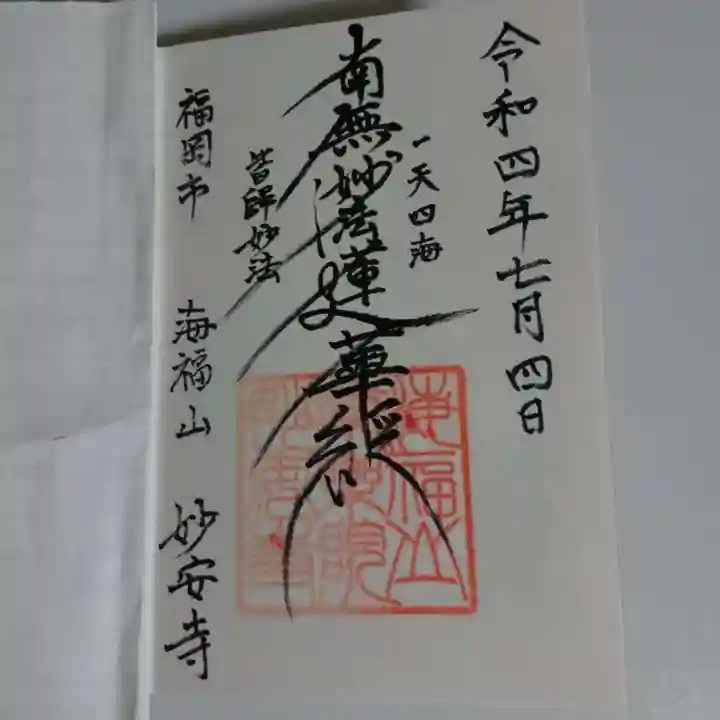 令和四年七月四日
一天四海
南無妙法蓮華経
皆歸妙法
福岡市 海福山 妙安寺
海福山